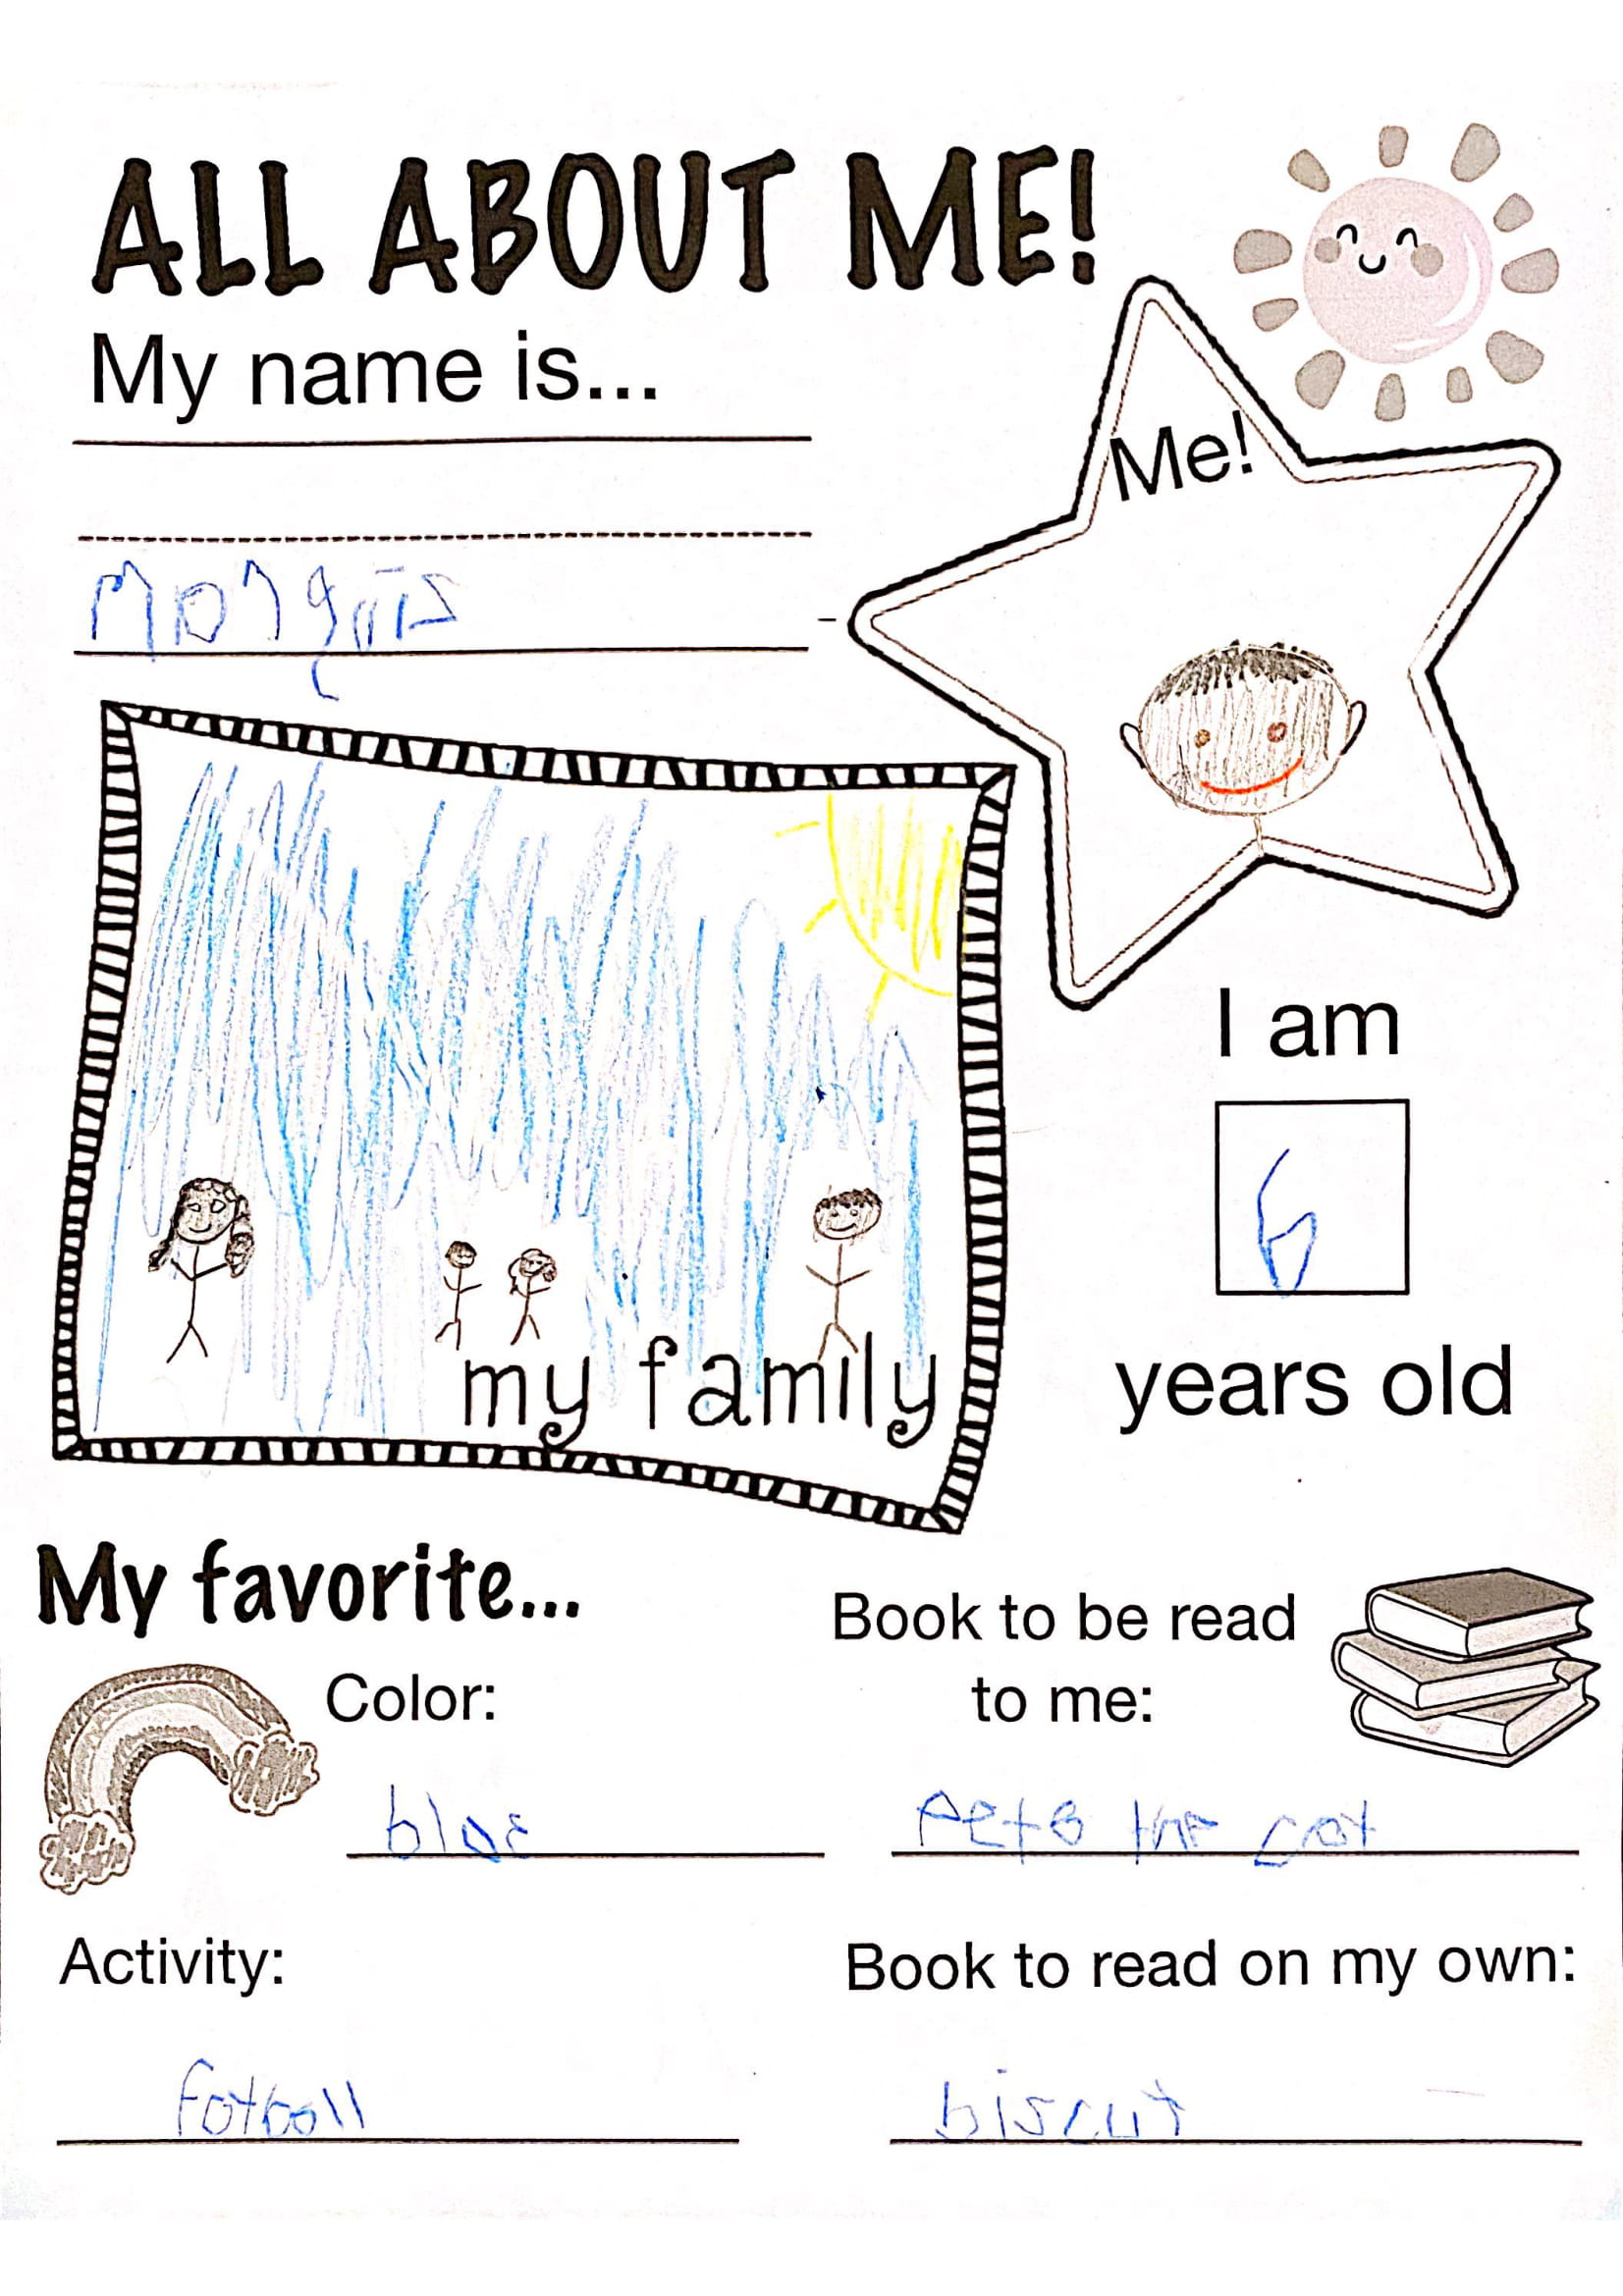 ALL ABOUT ME!
My name is...
Me!
Marquis
I am
6
years old
my family
My favorite...
Color:
blue
Book to be read
to me:
Pete the cat
Activity:
fotball
Book to read on my own:
biscut